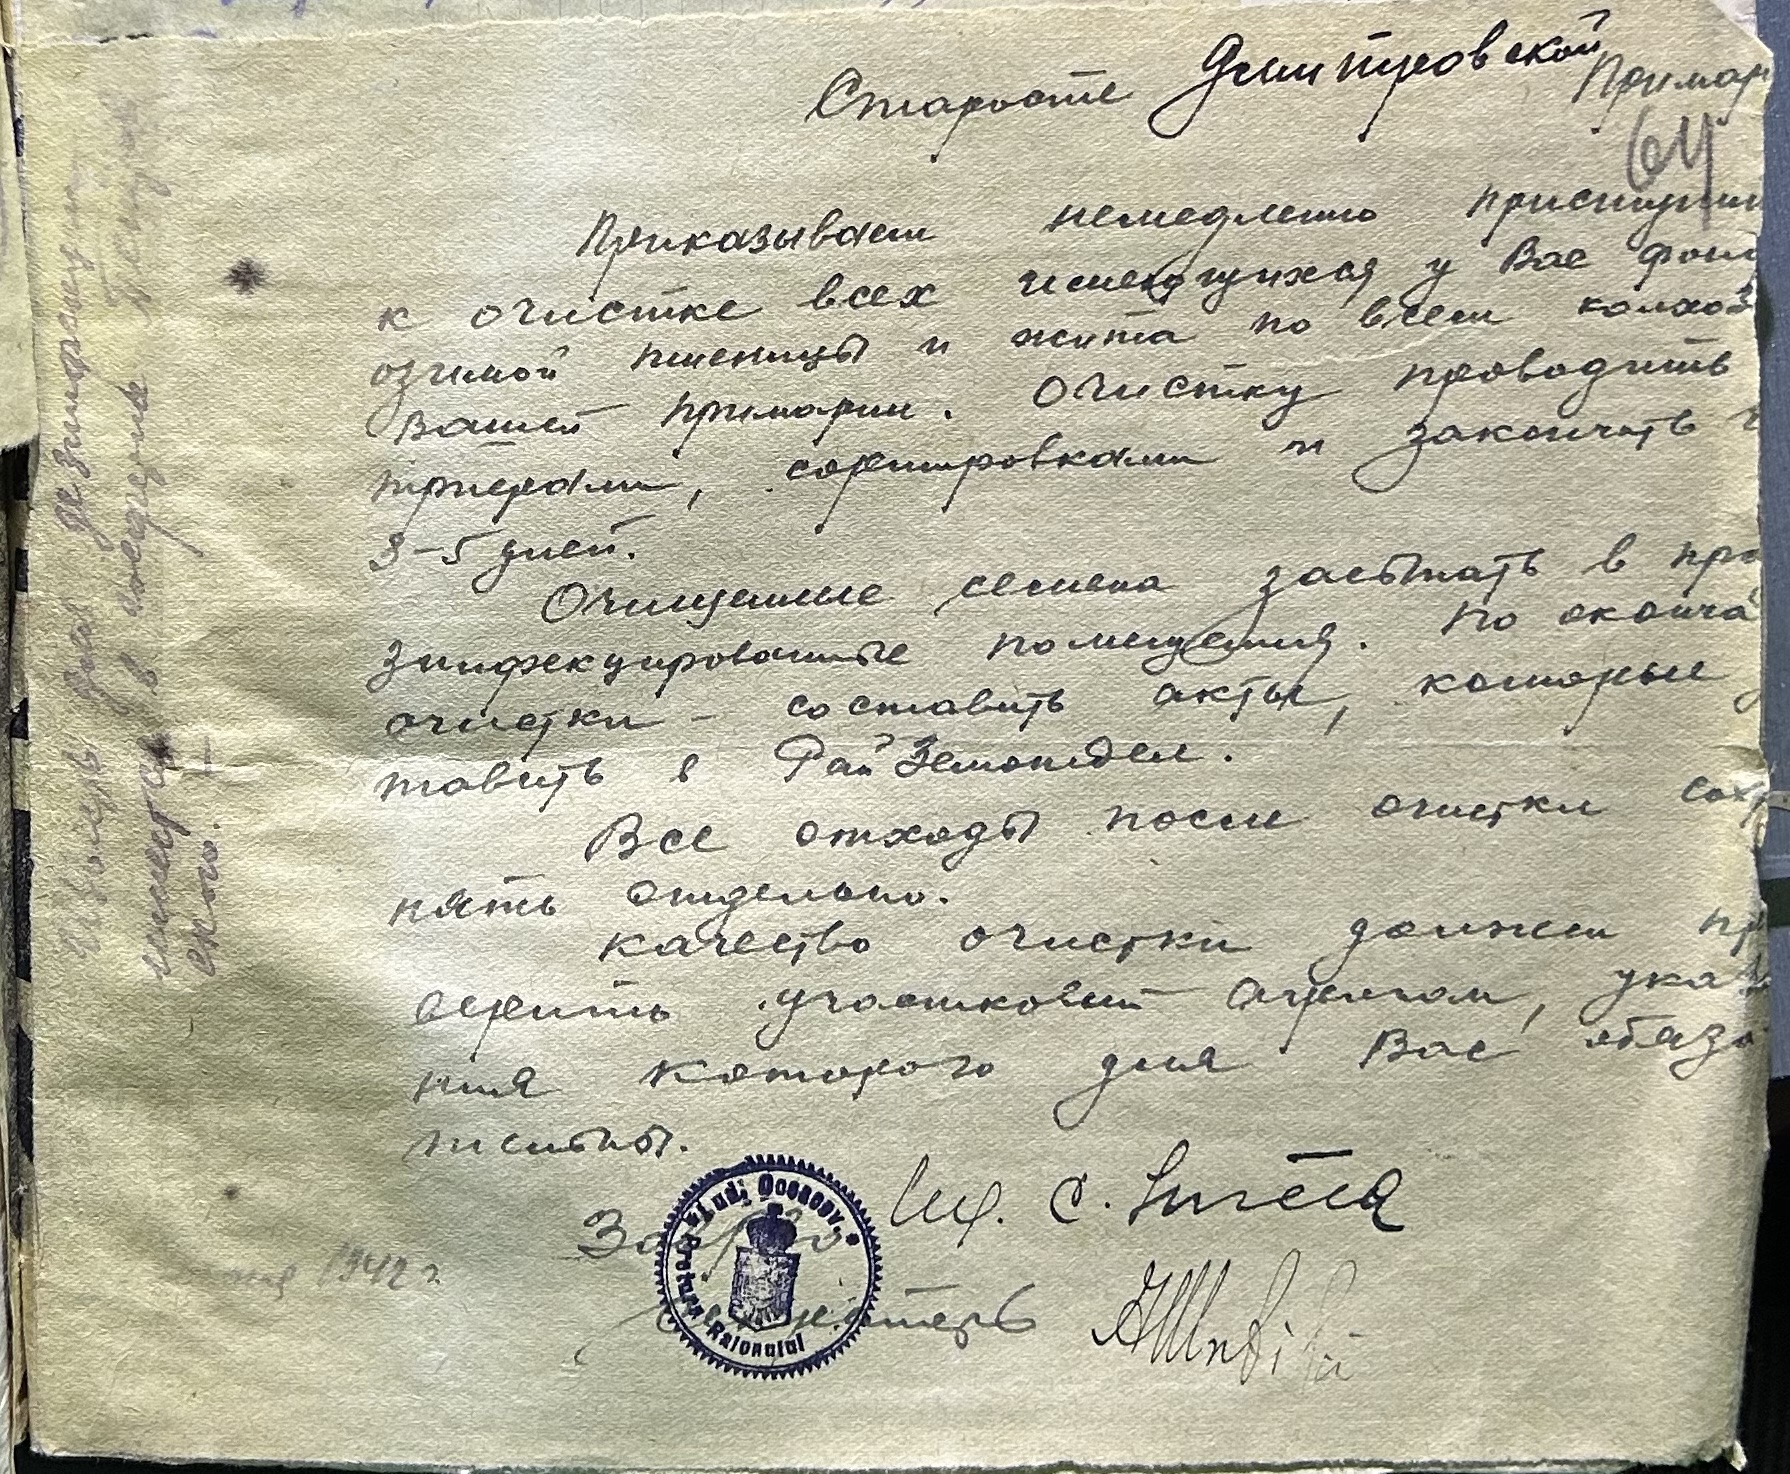 Старосте Дмитровской Примар
64
Приказываем немедленно приступи
к очистке всех имеющихся у Вас фон
озимой пшеницы и жита по всем колхоз
Вашей примарии. Очистку проводить
триерами, сортировками и закончить
3-5 дней.
Очищенные семена засыпать в про
зинфекцированные помещения. По оконча
очистки - составить акты, которые
тавить в РайЗемотдел.
Все отходы после очистки сохр
нять отдельно.
Качество очистки должен пр
верить участковый агроном, указа
ния которого для Вас обяза
тельны.
Judeţ Oceacov.
Pretura Raionului
1942 г.
Известь для дезинфекции
имеется в